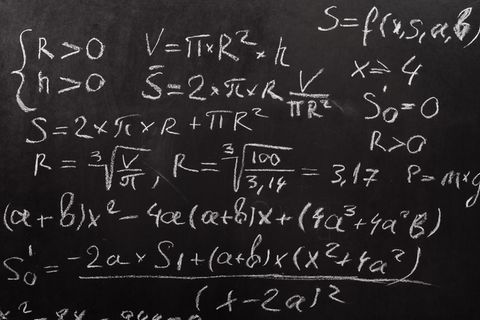 S=f(x,s,a,b)
{R>0 V=π×R²×h
h>0 S̄=2×π×R V/πR²
x⩾4
S'₀=0
S=2×π×R+πR²
R>0
R=³√(V/π), R=³√(100/3,14)=3,17
P=m×g
(a+b)x²-4a(a+b)x+(4a³+4a²b)
S'₀=(-2a×S₁+(a+b)×(x²+4a²))/(x-2a)²